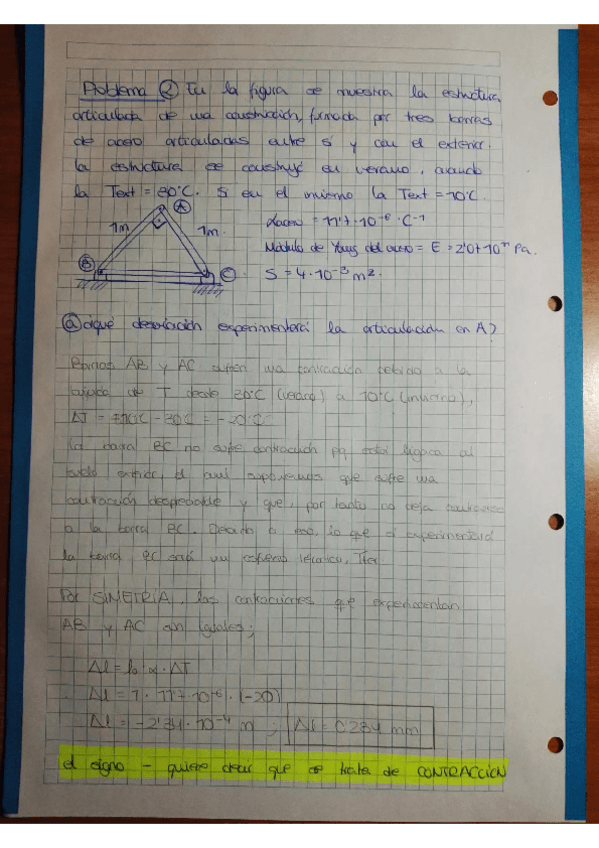 Problema ② En la figura se muestra la estructura
articulada de una construcción, formada por tres barras
de acero articuladas entre sí y con el exterior.
la estructura se construyó en verano, cuando
la Text = 30°C. Si en el invierno la Text = 10°C.
A
1m
1m.
B
C
αacero = 11'7·10⁻⁶ °C⁻¹
Módulo de Young del acero = E = 2'0·10¹¹ Pa.
S = 4·10⁻³ m².
ⓐ ¿qué desviación experimentará la articulación en A?
Barras AB y AC sufren una contracción debido a la
bajada de T desde 30°C (verano) a 10°C (invierno),
ΔT = 10°C - 30°C = -20°C
La barra BC no sufre contracción pq está ligada al
suelo exterior, el cual suponemos que sufre una
contracción despreciable y que, por tanto no deja contraerse
a la barra BC. Debido a eso, lo que sí experimentará
la barra BC será un esfuerzo térmico,
Por SIMETRÍA, las contracciones que experimentan
AB y AC son iguales;
Δl = l₀·α·ΔT
Δl = 1·11'7·10⁻⁶·(-20)
Δl = -2'34·10⁻⁴ m ; Δl = 0'234 mm
el signo - quiere decir que se trata de CONTRACCIÓN